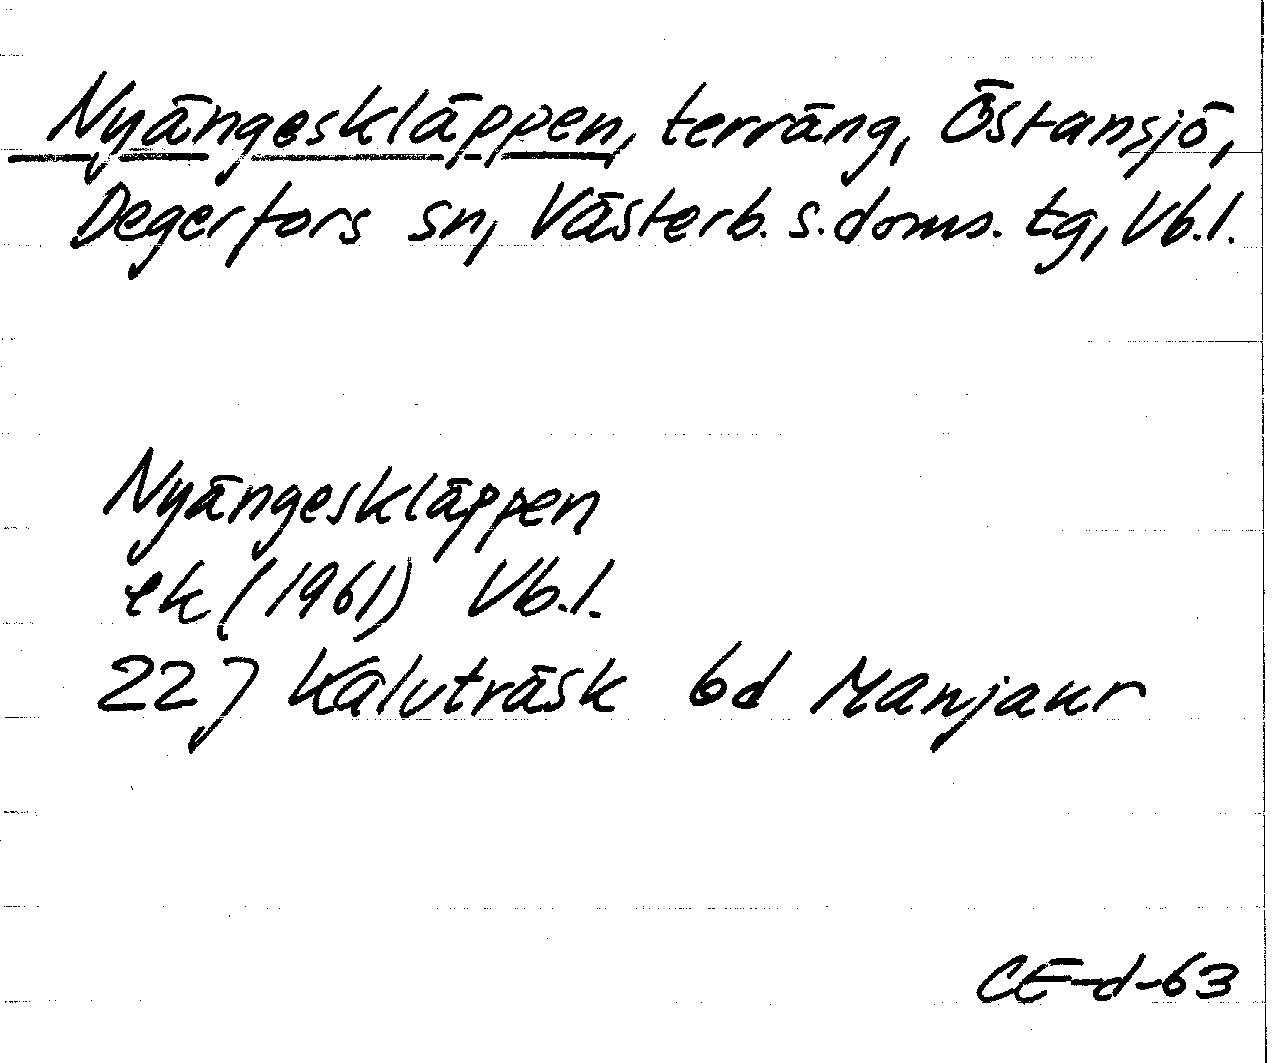 Nyängeskläppen, terräng, Östansjö,
Degerfors sn, Västerb. s. doms. tg, Vb.l.
Nyängeskläppen
ek (1961) Vb.l.
22J Kalvträsk 6d Manjaur
CE-d-63